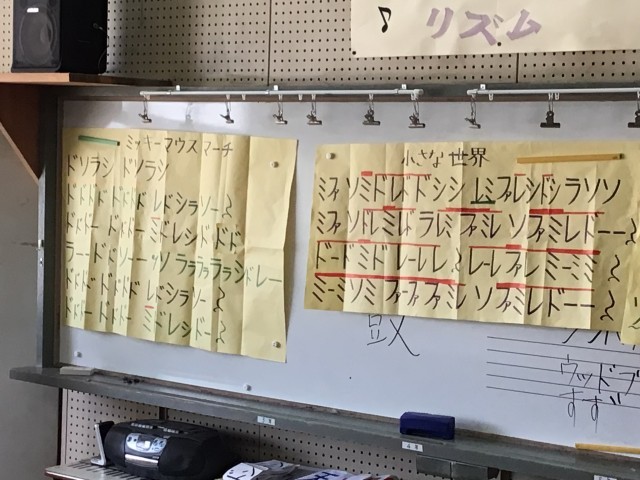 ♪ リズム
ミッキーマウスマーチ
ドソラシ ドソラシ
ドドドドドドド レドシラソー
ドドドー ドドドー ミドレシドドド
ラーードドソーーッソ ララララシドレー
ドドドドドドド レドシラソー
ドドドー ドドドー ミドレシドー
小さな世界
ミファソミドレドドシシ レミファレシドシラソソ
ミファソドレミレラレミファミレ ソファミレドーー
ドードミドレーレレ レーレファレミーミミ
ミーミソミファファファミレ ソファミレドーー
ウッドブ
すず